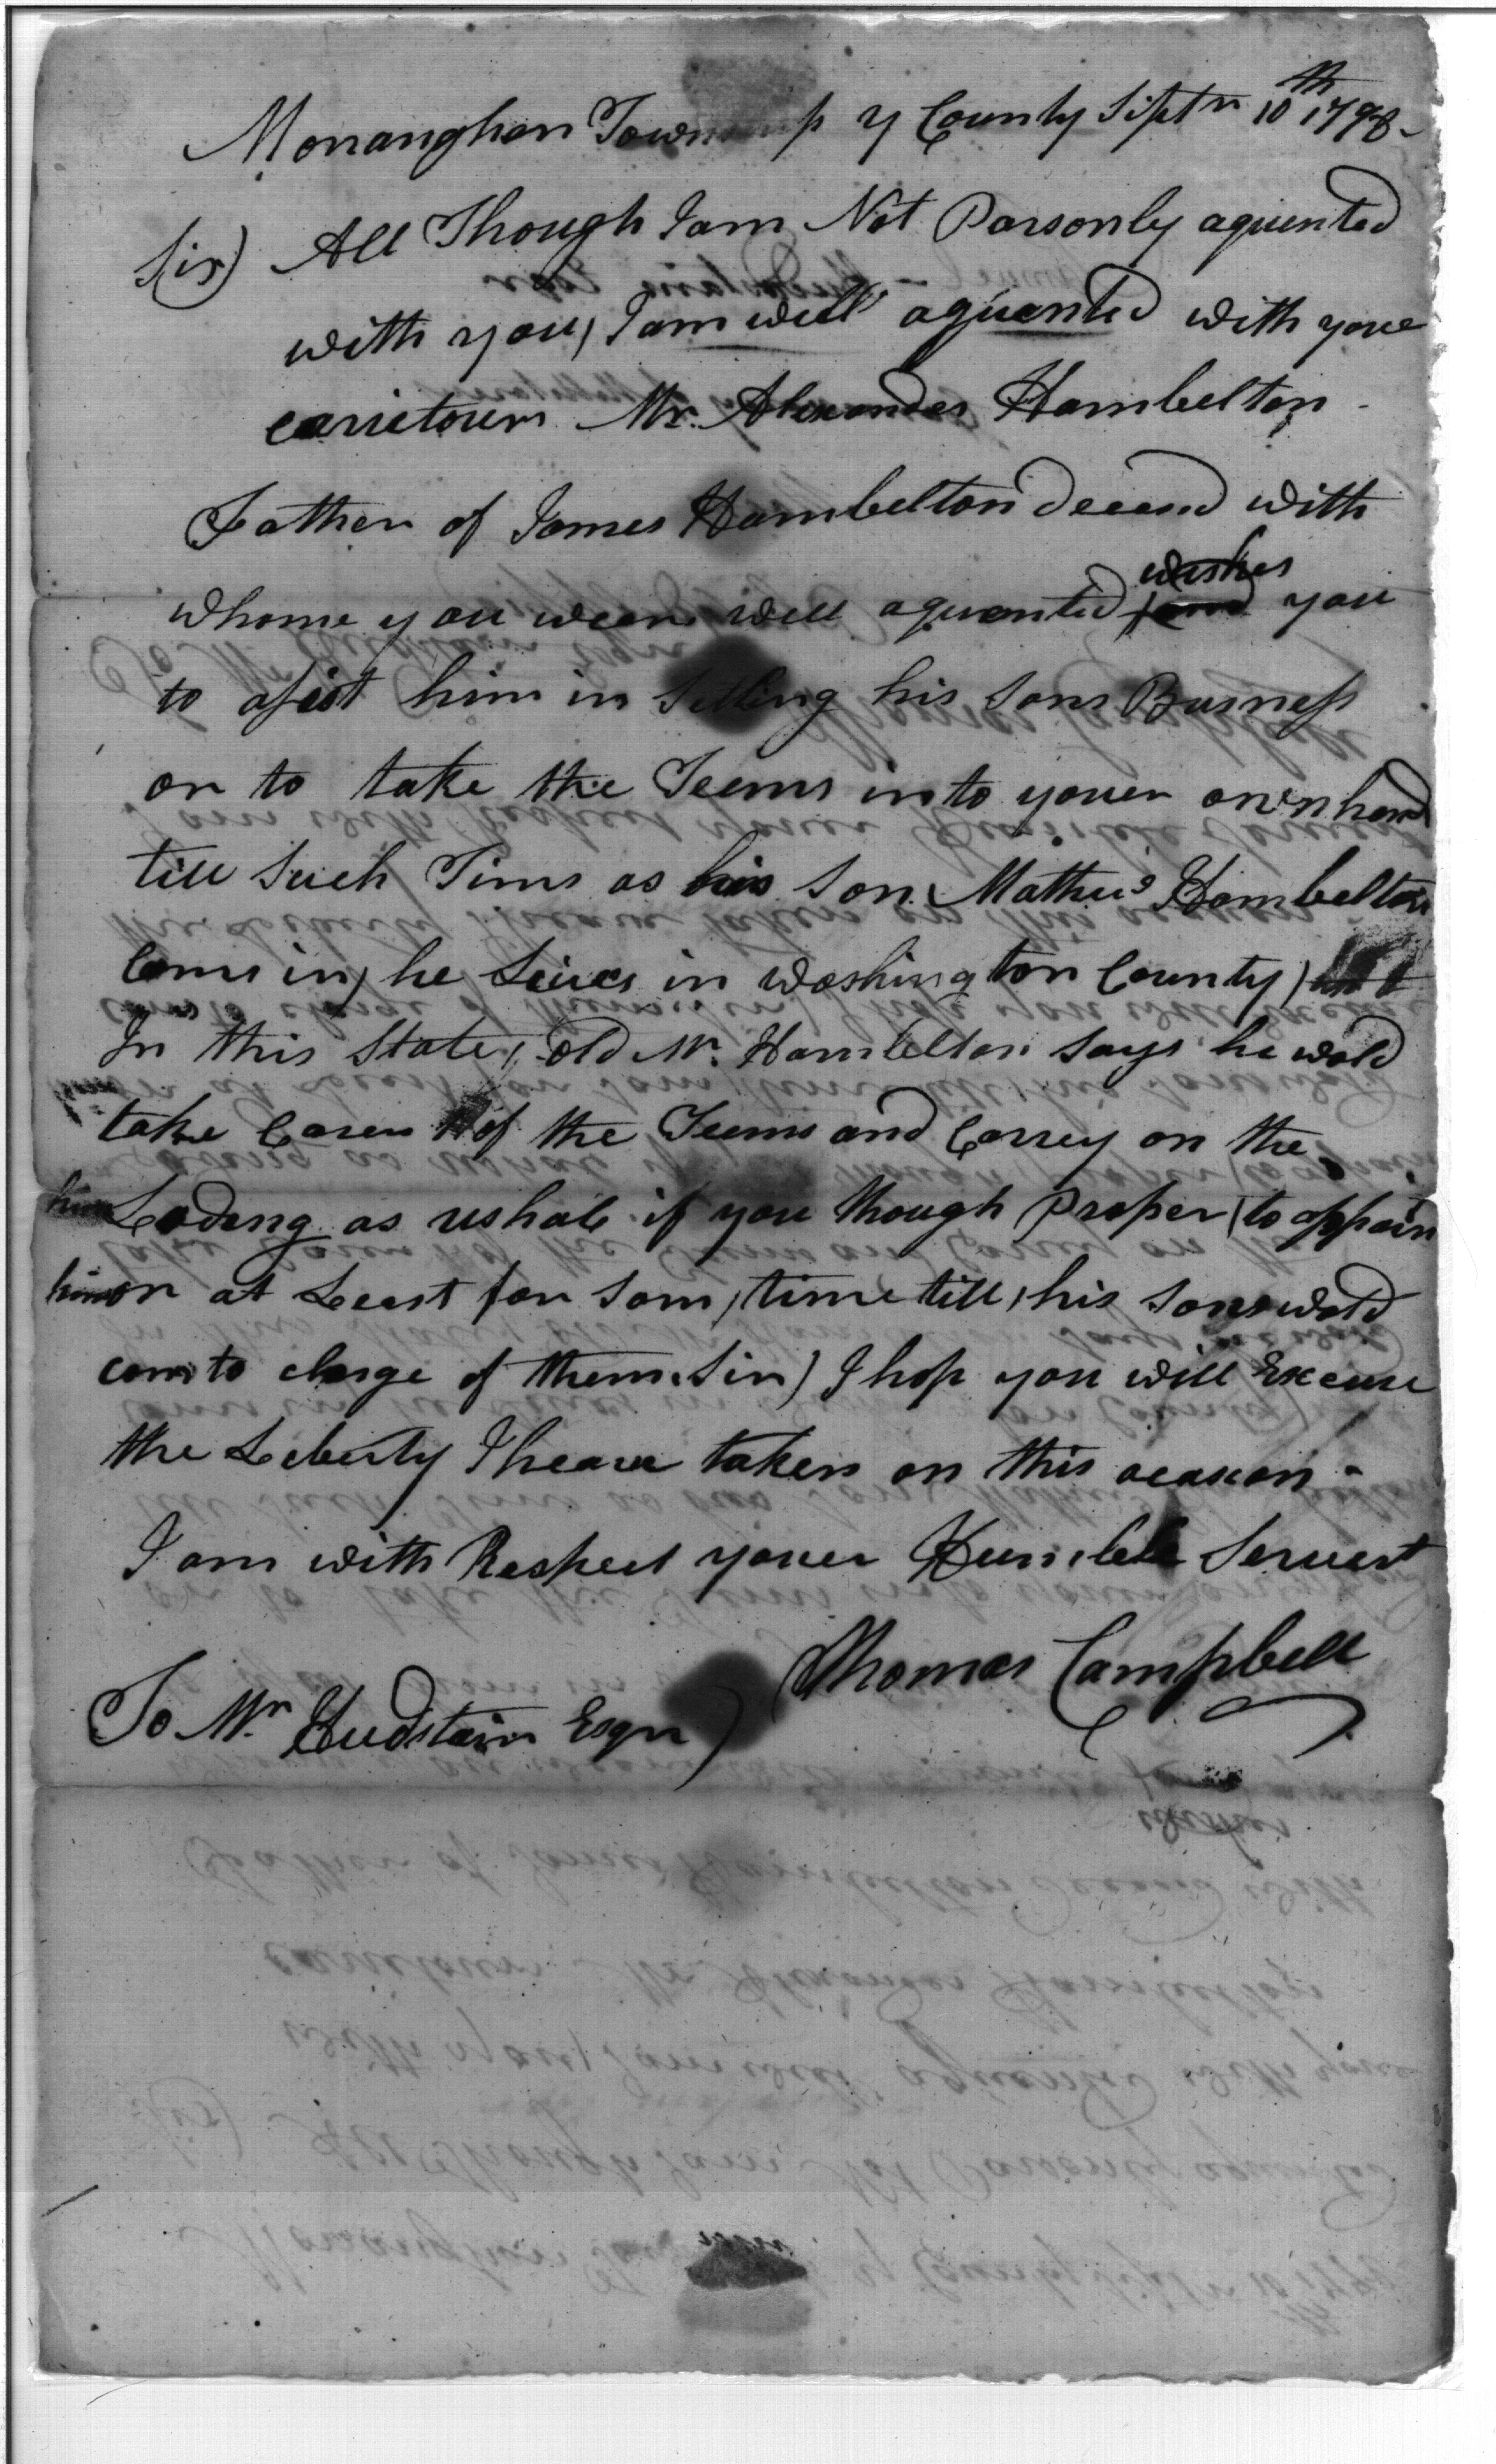 Monanghan Township y County Siptr 10th 1798
Sir) All Though I am Not Parsonly aquented
with you, I am well aquanted with youe
Mr. Alexander Hambelton
Father of James Hambelton Decesd with
whome you ween well aquanted wishes you
to asist him in Setling his sons Busness
or to take the Teems in to youer own hand
till Such Time as his Son Mathew Hambelton
Coms in, he Lives in Washington County)
In this State, Old Mr. Hambelton Says he wold
take Caren of the Teems and Carrey on the
Loding as ushale if you though Proper to appoin
him or at Leest for Som time till his Son wold
com to charge of them. Sir) I hop you will Excuse
the Leberty I heave taken on this ocasion -
I am with Respect youer Humble Servent
Thomas Campbell
To Mr Hudstain Esqr)